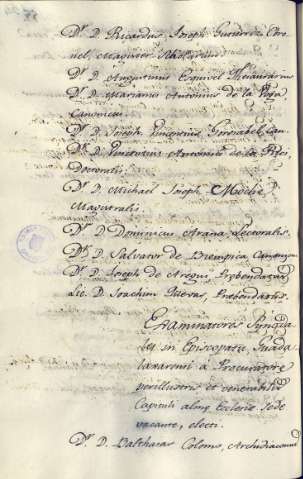 Dr. D. Ricardus Joseph Gutierrez Coro
nel, Magister Scholarum
Dr. D. Augustinus Esquivel Thesaurarius
Dr. D. Marianus Antonius de la Vega
Canonicus
Dr. D. Joseph Vincentius Gorosabel Can.
Dr. D. Vincentius Antonius de los Rios,
Doctoralis.
Dr. D. Michael Joseph Moche
Magistralis
Dr. D. Dominicus Arana, Lectoralis.
Dr. D. Salvator de Bempica Canonicus
Dr. D. Joseph de Aregui, Præbendarius
Lic. D. Joachim Cuevas, Præbendarius.
Examinatores Synoda
les in Episcopatu Guada
laxarensi à Procuratore
perillustris et venerabilis
Capituli almæ Ecclesiæ Sede
vacante, electi.
Dr. D. Balthasar Colomo, Archidiaconus